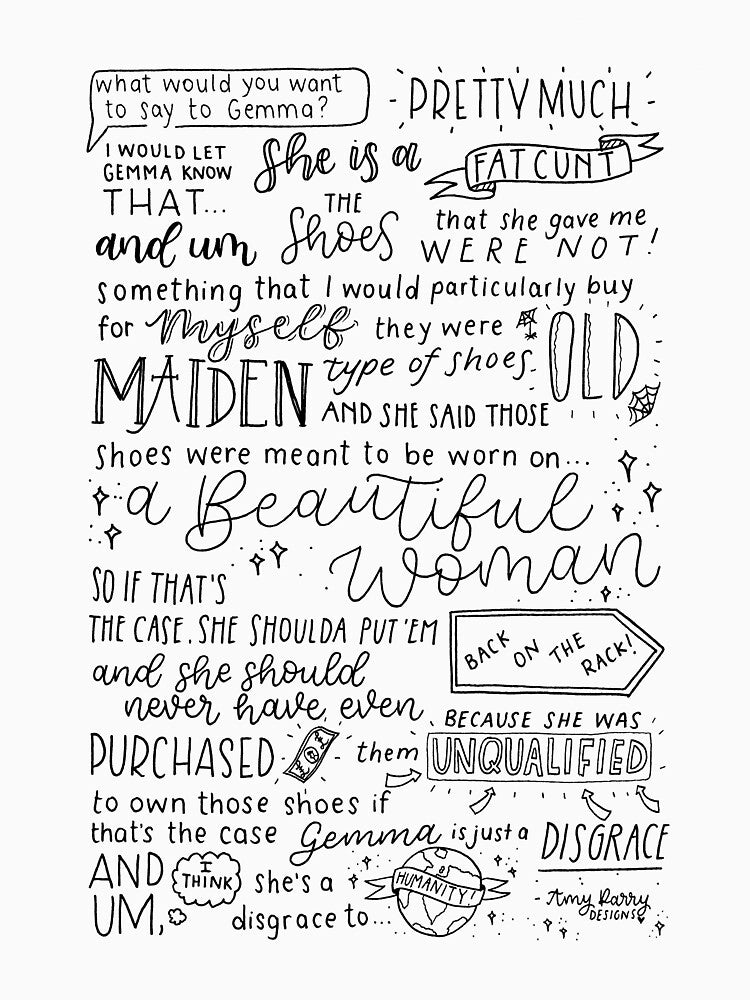 what would you want
to say to Gemma?
- PRETTY MUCH -
I WOULD LET
GEMMA KNOW
THAT...
She is a
FAT CUNT
and um
THE
Shoes
that she gave me
WERE NOT!
something that I would particularly buy
for myself they were
OLD
MAIDEN
type of shoes.
AND SHE SAID THOSE
shoes were meant to be worn on...
a Beautiful
woman
SO IF THAT'S
THE CASE, SHE SHOULDA PUT 'EM
BACK ON THE RACK!
and she should
never have even
PURCHASED
them
BECAUSE SHE WAS
UNQUALIFIED
to own those shoes if
that's the case Gemma is just a
DISGRACE
AND
UM,
I
THINK
she's a
disgrace to...
HUMANITY!
- Amy Parry
DESIGNS